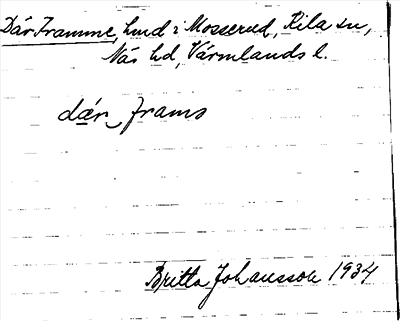 Där Framme, lmd i Mosserud, Kila sn,
Näs hd, Värmlands l.
dǣr frams
Britta Johansson 1934